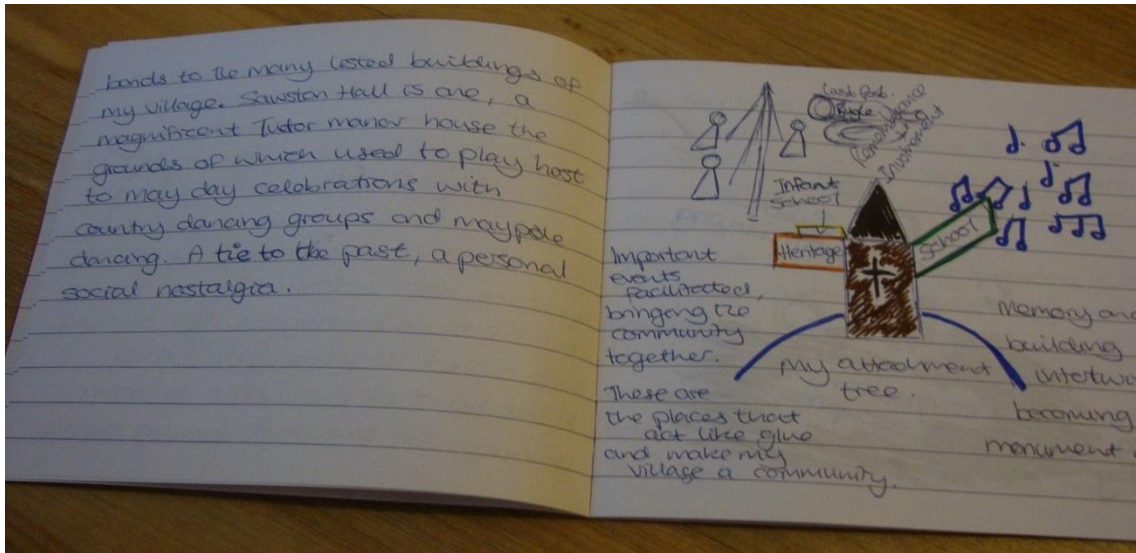 bonds to the many listed buildings of
my village. Sawston Hall is one, a
magnificent Tutor manor house the
grounds of which used to play host
to may day celebrations with
country dancing groups and maypole
dancing. A tie to the past, a personal
social nostalgia.
Last Post.
Bugle
Remembrance
Involvement
Infant
School
Heritage
School
Important
events
facilitated,
bringing the
community
together.
These are
the places that
act like glue
and make my
village a community.
My attachment
tree.
Memory and
building
becoming
monument